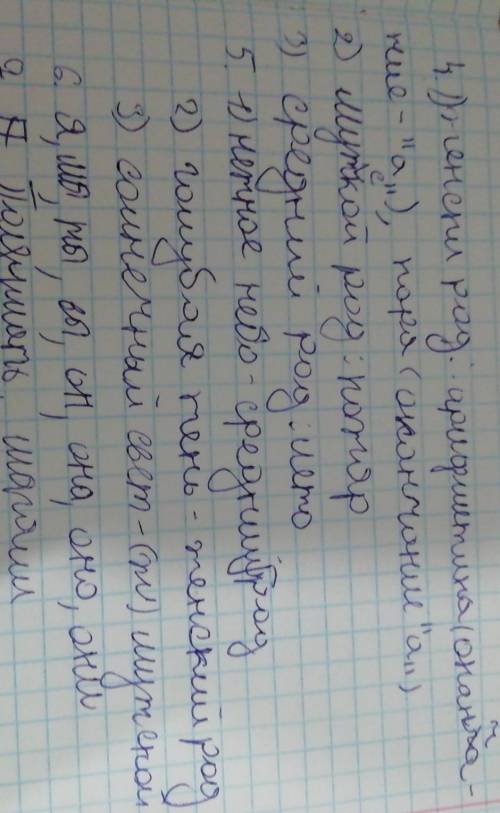 4. 1) женски род: арифметика (оконча-
ние - "а"), пора (окончание "а")
2) мужской род: пожар
3) средний род: лето
5. 1) нежное небо - средний род
2) голубая тень - женский род
3) солнечный свет - (м) мужской
6. Я, мы, ты, вы, он, она, оно, они
7.